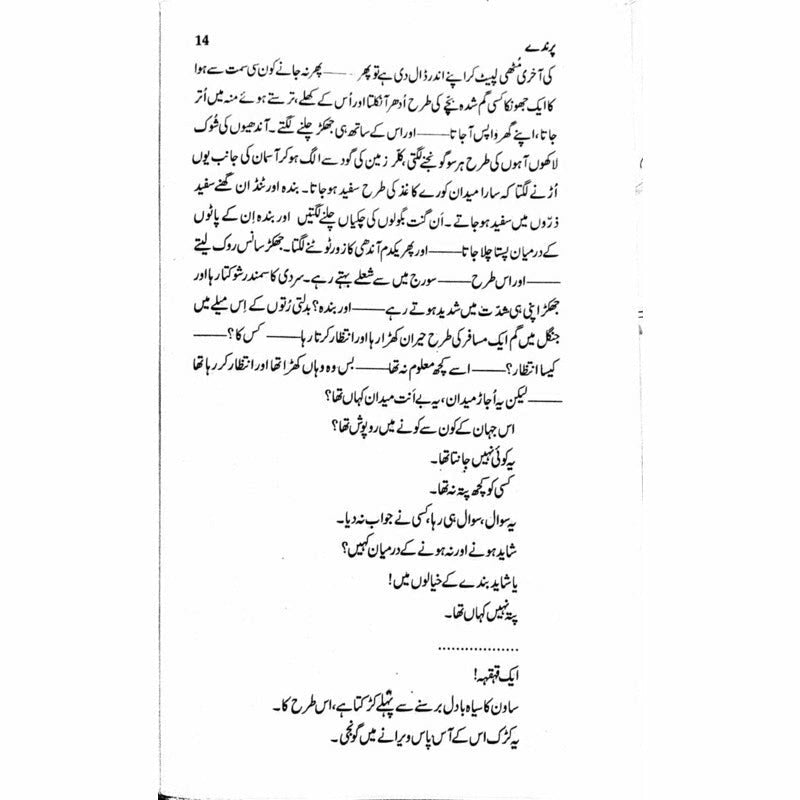 پرندے 14
کی آخری مُٹھی لپیٹ کر اپنے اندر ڈال دی ہے تو پھر —— پھر نہ جانے کون سی سمت سے ہوا
کا ایک جھونکا کسی گم شدہ بچّے کی طرح اُدھر آ نکلتا اور اُس کے کھلے، ترستے ہوئے منہ میں اُتر
جاتا، اپنے گھر واپس آ جاتا —— اور اس کے ساتھ ہی جھکڑ چلنے لگتے۔ آندھیوں کی شُوک
لاکھوں آہوں کی طرح ہر سو گونجنے لگتی، کلّر زمین کی گود سے الگ ہو کر آسمان کی جانب یوں
اُڑنے لگتا کہ سارا میدان کورے کاغذ کی طرح سفید ہو جاتا۔ بندہ اور ٹنڈ ان گھنے سفید
ذرّوں میں سفید ہو جاتے۔ اَن گنت بگولوں کی چکیاں چلنے لگتیں اور بندہ اِن کے پاٹوں
کے درمیان پستا چلا جاتا —— اور پھر یکدم آندھی کا زور ٹوٹنے لگتا۔ جھکڑ سانس روک لیتے
—— اور اس طرح —— سورج میں سے شعلے بہتے رہے۔ سردی کا سمندر شوکتا رہا اور
جھکڑ اپنی ہی شدّت میں شدید ہوتے رہے —— اور بندہ؟ بدلتی رُتوں کے اِس میلے میں
جنگل میں گم ایک مسافر کی طرح حیران کھڑا رہا اور انتظار کرتا رہا —— کس کا؟ ——
کیسا انتظار؟ —— اسے کچھ معلوم نہ تھا —— بس وہ وہاں کھڑا تھا اور انتظار کر رہا تھا
—— لیکن یہ اُجاڑ میدان، یہ بے اَنت میدان کہاں تھا؟
اس جہان کے کون سے کونے میں روپوش تھا؟
یہ کوئی نہیں جانتا تھا۔
کسی کو کچھ پتہ نہ تھا۔
یہ سوال، سوال ہی رہا، کسی نے جواب نہ دیا۔
شاید ہونے اور نہ ہونے کے درمیان کہیں؟
یا شاید بندے کے خیالوں میں!
پتہ نہیں کہاں تھا۔
..................
ایک قہقہہ!
ساون کا سیاہ بادل برسنے سے پہلے کڑکتا ہے، اس طرح کا۔
یہ کڑک اس کے آس پاس ویرانے میں گونجی۔